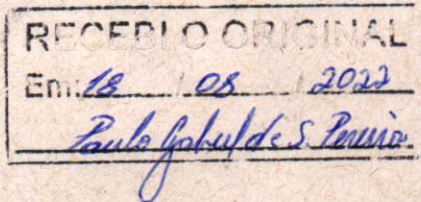 RECEBI O ORIGINAL
Em: 18 / 08 / 2022
Paulo Gabriel de S. Pereira